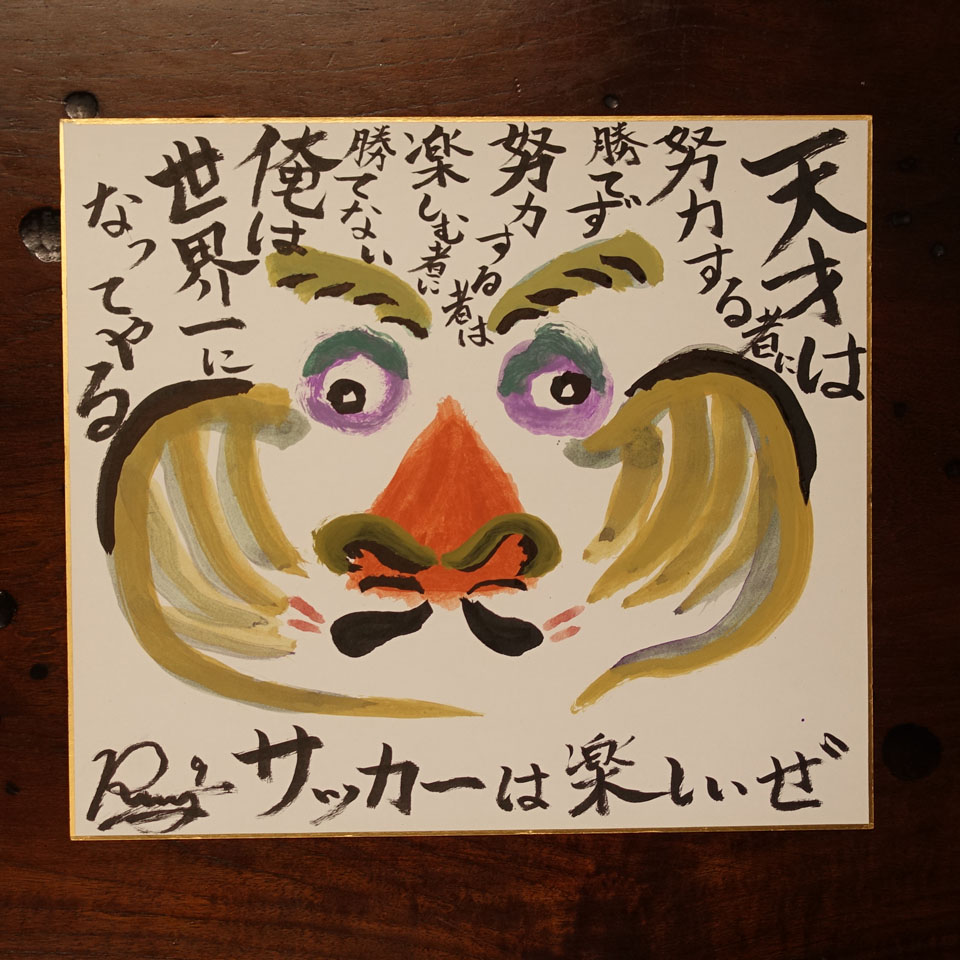 天才は
努力する者に
勝てず
努力する者は
楽しむ者に
勝てない
俺は
世界一に
なってやる
サッカーは楽しいぜ